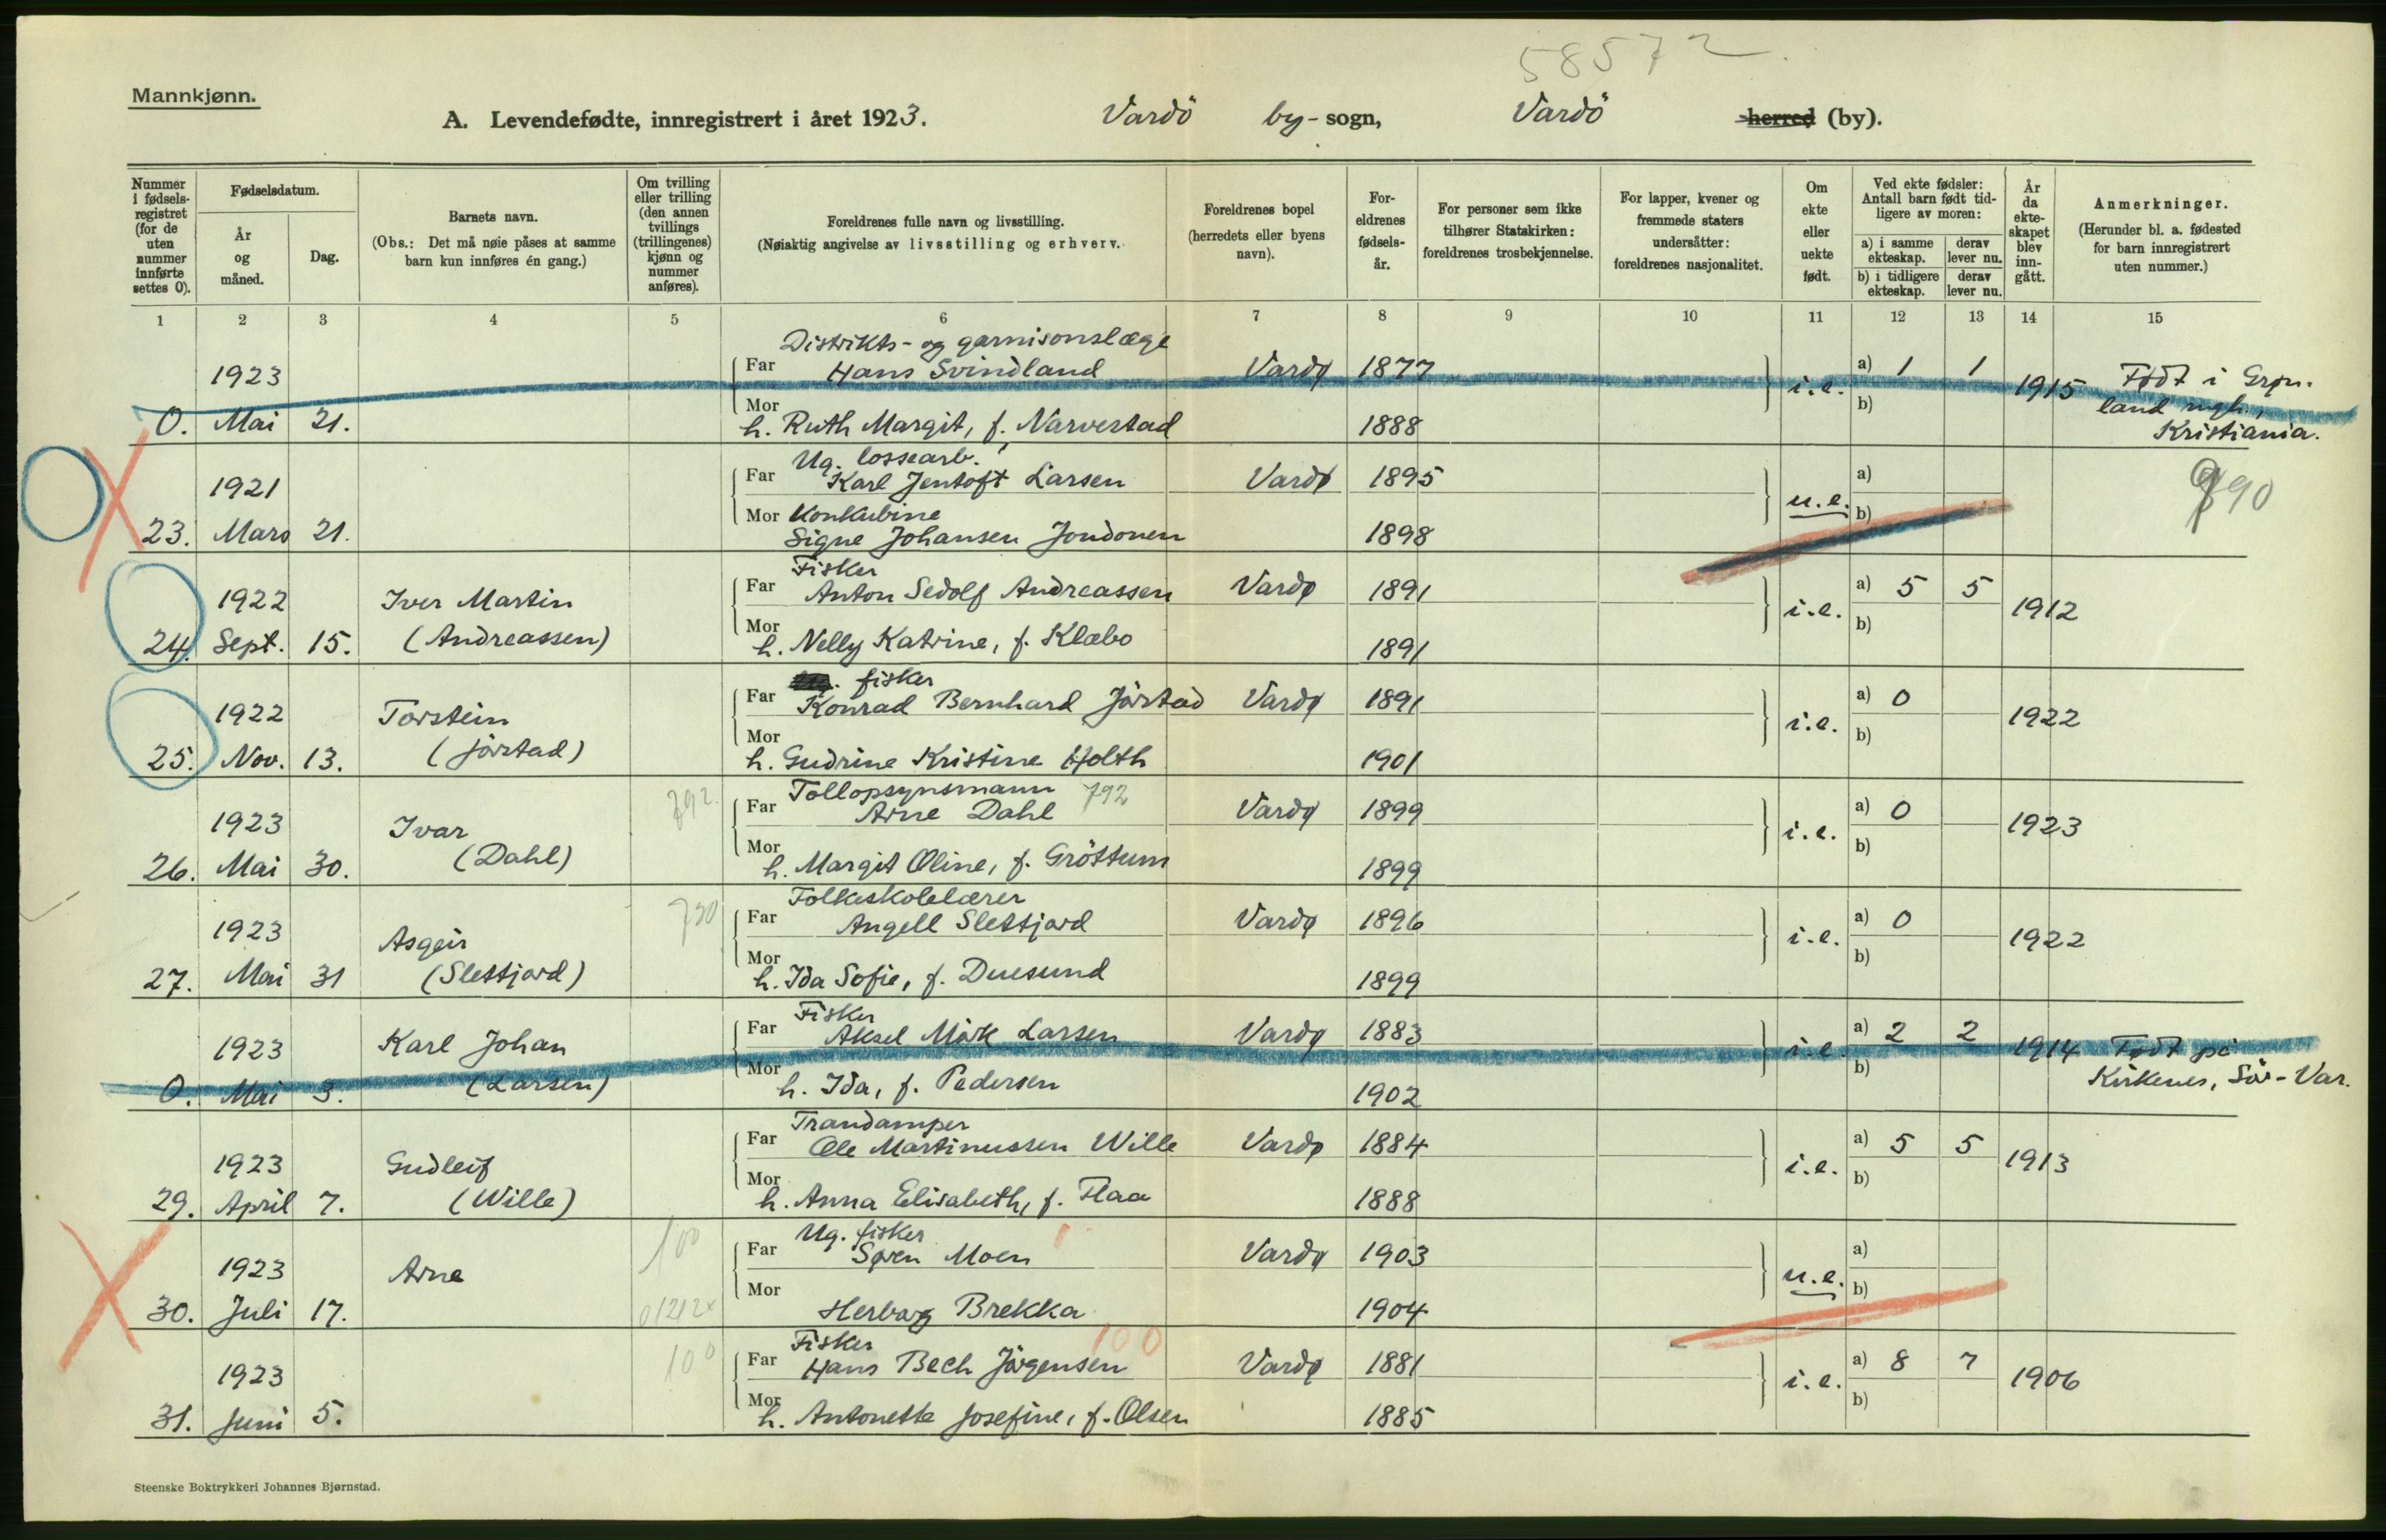 58572
Mannkjønn.
A. Levendefødte, innregistrert i året 1923. Vardö by-sogn, Vardö herred (by).
Nummer i fødselsregistret (for de uten nummer innførte settes 0).
Fødselsdatum.
År og måned.
Dag.
Barnets navn.
(Obs.: Det må nøie påses at samme barn kun innføres én gang.)
Om tvilling eller trilling (den annen tvillings (trillingenes) kjønn og nummer anføres).
Foreldrenes fulle navn og livsstilling.
(Nøiaktig angivelse av livsstilling og erhverv.
Foreldrenes bopel (herredets eller byens navn).
Foreldrenes fødselsår.
For personer som ikke tilhører Statskirken: foreldrenes trosbekjennelse.
For lapper, kvener og fremmede staters undersåtter: foreldrenes nasjonalitet.
Om ekte eller uekte født.
Ved ekte fødsler: Antall barn født tidligere av moren:
a) i samme ekteskap. derav lever nu.
b) i tidligere ekteskap. derav lever nu.
År da ekteskapet blev inngått.
Anmerkninger.
(Herunder bl. a. fødested for barn innregistrert uten nummer.)
1 2 3 4 5 6 7 8 9 10 11 12 13 14 15
Distrikts- og garnisonslæge
1923 Far Hans Svindland Vardø 1877 i.e. a) 1 1 1915 Født i Grøn-
0. Mai 21. Mor h. Ruth Margit, f. Narvestad 1888 b) land mgh.,
Kristiania.
Ug. lossearb.
1921 Far Karl Jentoft Larsen Vardø 1895 u.e. a) 790
23. Mars 21. Mor Konkubine
Signe Johansen Jondonen 1898 b)
Fisker
1922 Iver Martin Far Anton Sedolf Andreassen Vardø 1891 i.e. a) 5 5 1912
24. Sept. 15. (Andreassen) Mor h. Nelly Katrine, f. Klæbo 1891 b)
fisker
1922 Torstein Far Konrad Bernhard Jørstad Vardø 1891 i.e. a) 0 1922
25. Nov. 13. (Jørstad) Mor h. Gudrine Kristine Holth 1901 b)
792. Tollopsynsmann 792
1923 Ivar Far Arne Dahl Vardø 1899 i.e. a) 0 1923
26. Mai 30. (Dahl) Mor h. Margit Oline, f. Gröttum 1899 b)
730 Folkeskolelærer
1923 Asgeir Far Angell Slettjord Vardø 1896 i.e. a) 0 1922
27. Mai 31 (Slettjord) Mor h. Ida Sofie, f. Duesund 1899 b)
Fisker
1923 Karl Johan Far Aksel Mörk Larsen Vardø 1883 i.e. a) 2 2 1914 Født på
0. Mai 3. (Larsen) Mor h. Ida, f. Pedersen 1902 b) Kirkenes, Sör-Var.
Trandamper
1923 Gudleif Far Ole Martinussen Wille Vardø 1884 i.e. a) 5 5 1913
29. April 7. (Wille) Mor h. Anna Elisabeth, f. Flaa 1888 b)
100 Ug. fisker
1923 Arne Far Søren Moen Vardø 1903 u.e. a)
30. Juli 17. 01212x Mor Herborg Brekka 1904 b)
100 Fisker 100
1923 Far Hans Bech Jörgensen Vardø 1881 i.e. a) 8 7 1906
31. Juni 5. Mor h. Antonette Josefine, f. Olsen 1885 b)
Steenske Boktrykkeri Johannes Bjørnstad.